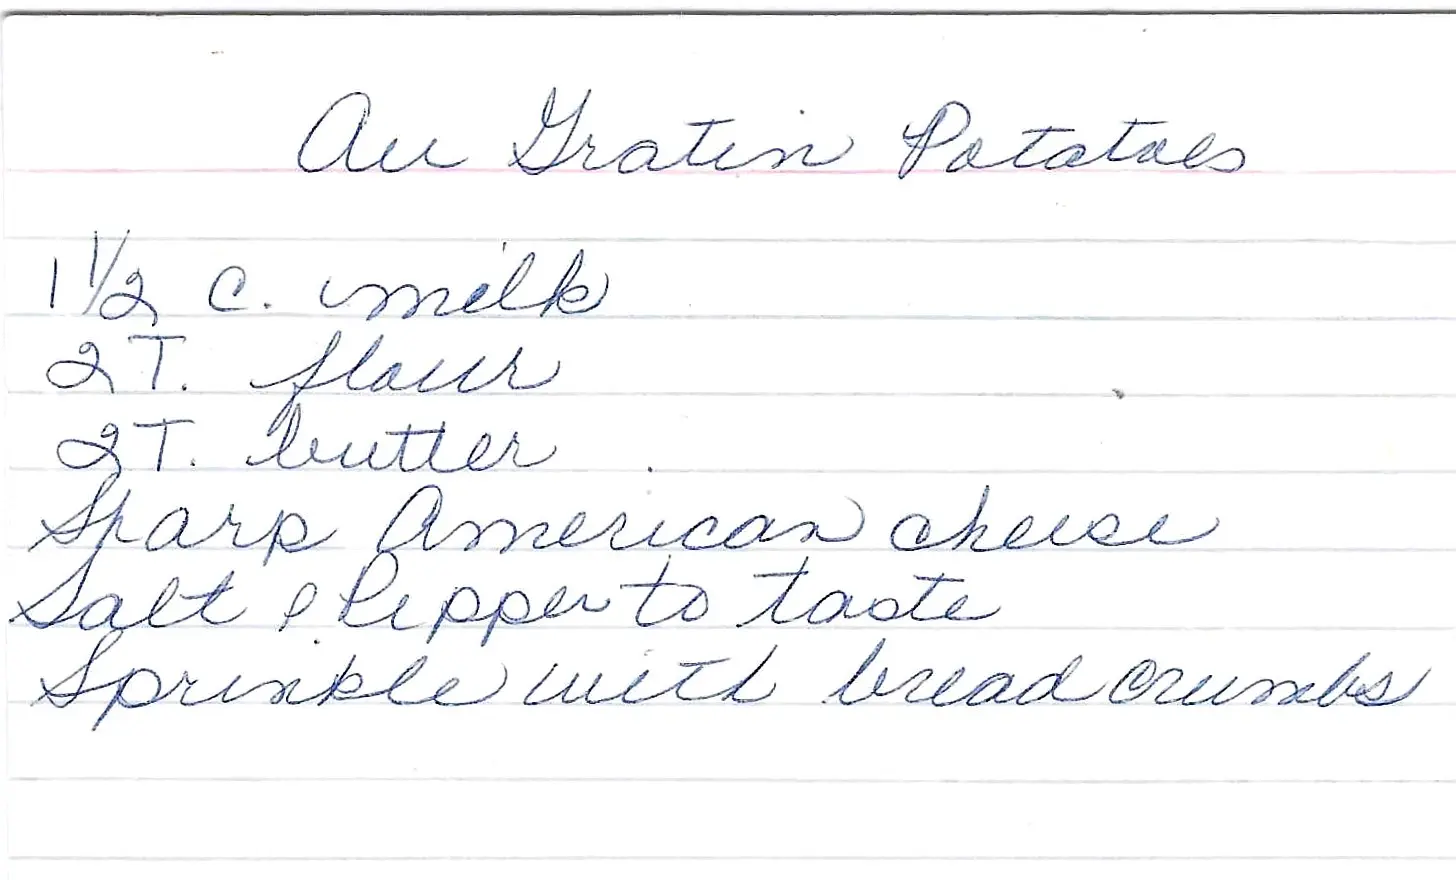 Au Gratin Potatoes
1 1/2 c. milk
2 T. flour
2 T. butter
Sharp American cheese
Salt & Pepper to taste
Sprinkle with bread crumbs